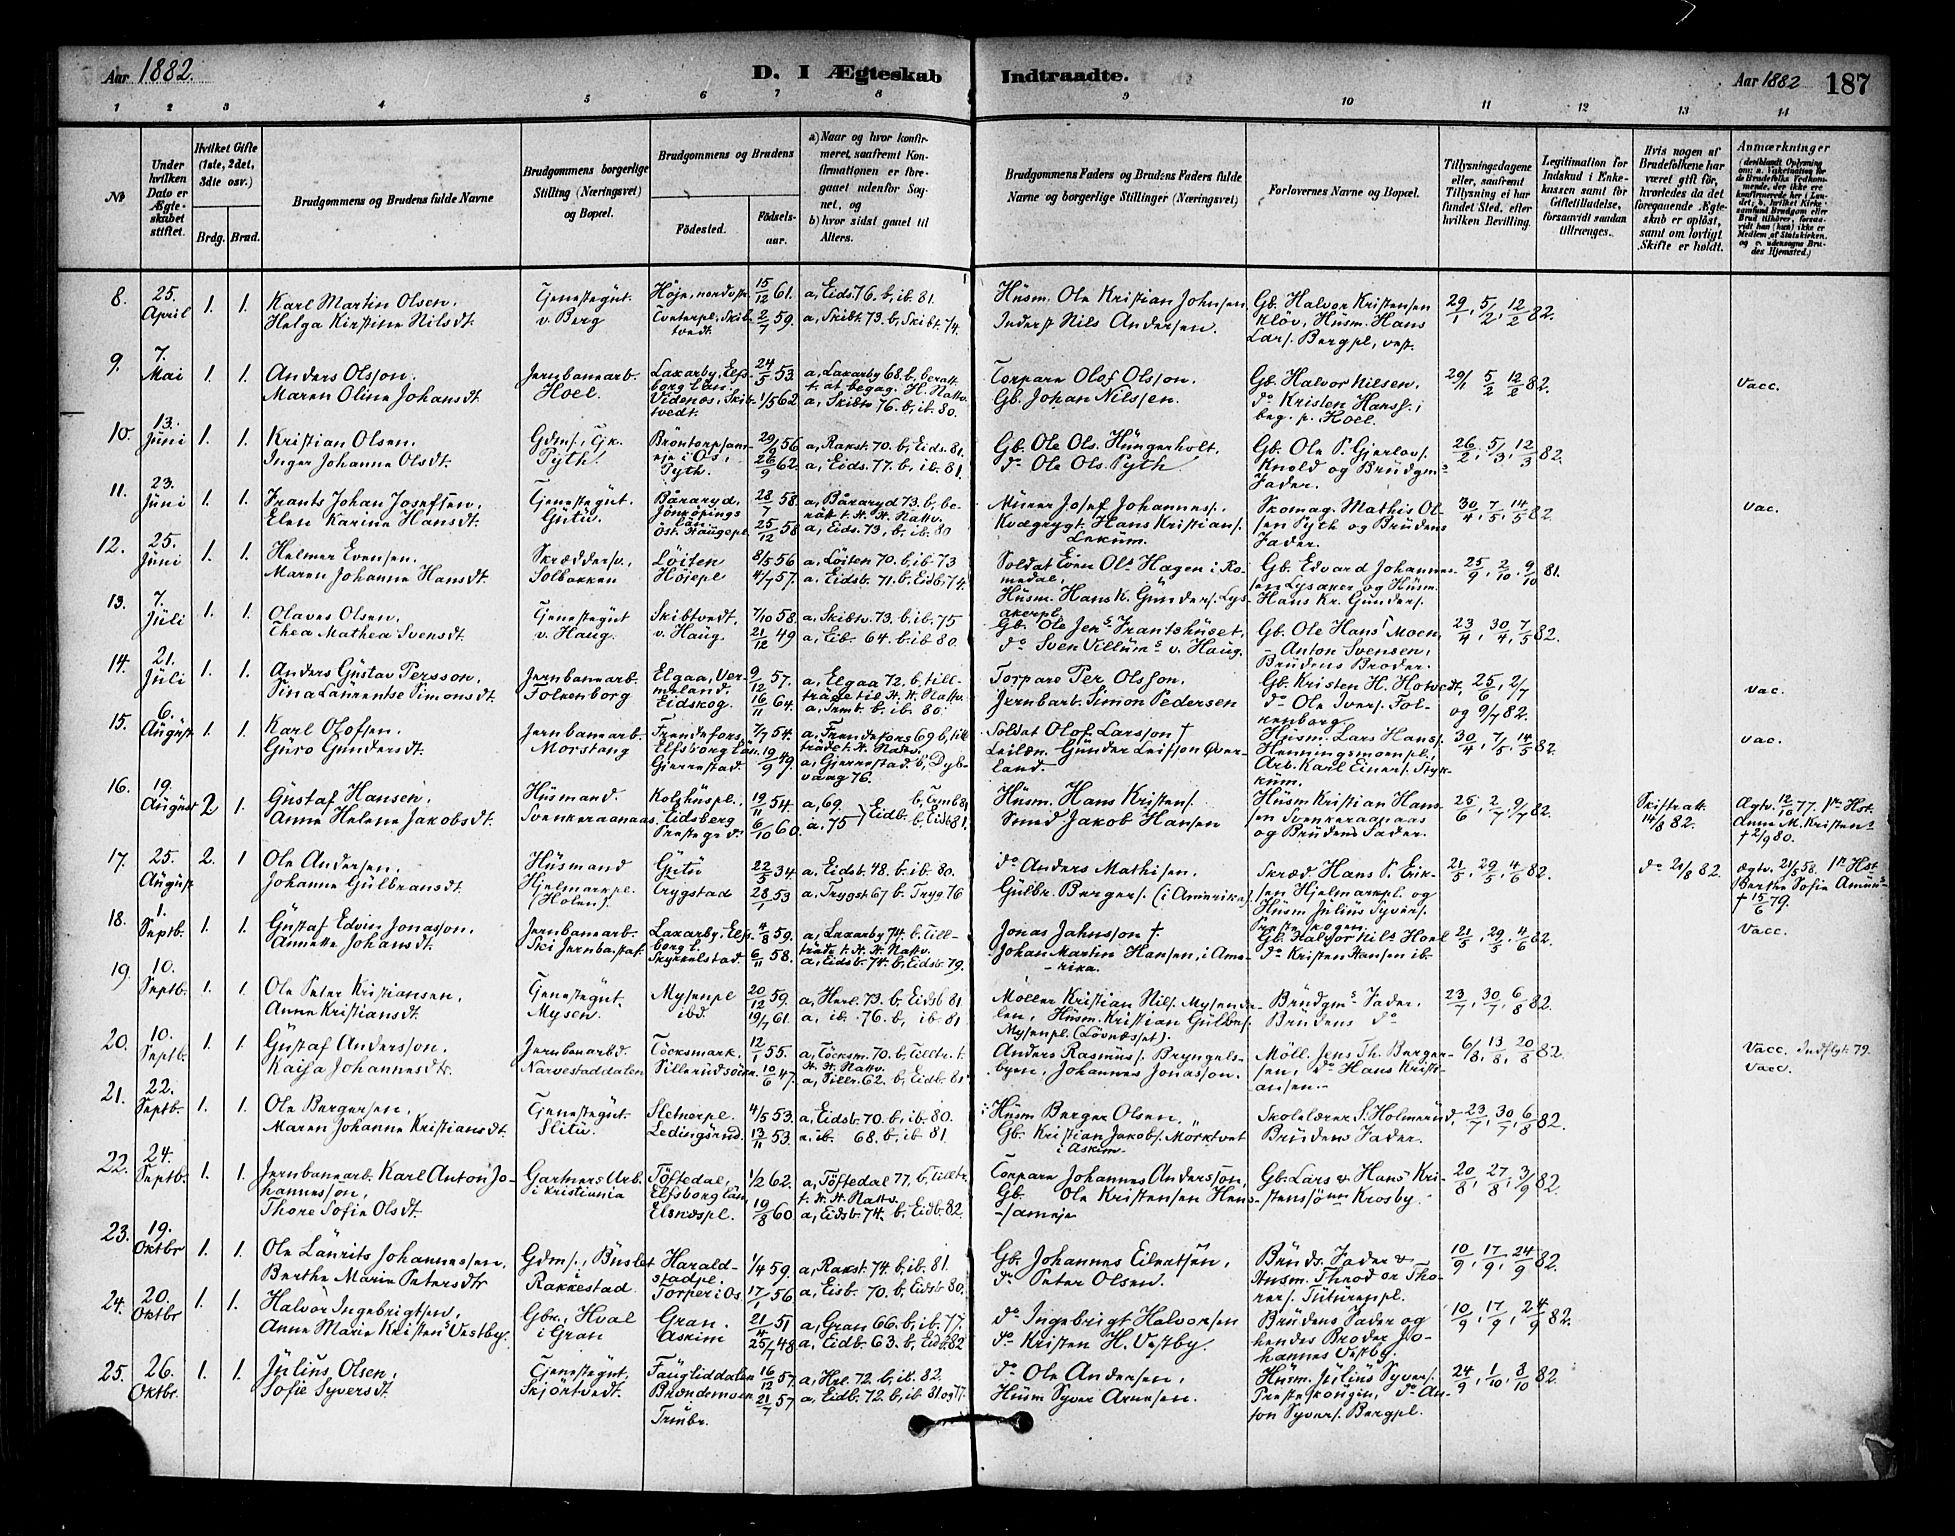 Aar 1882.
D. I Ægteskab Indtraadte.
Aar 1882 187
1 2 3 4 5 6 7 8 9 10 11 12 13 14
№
Under hvilken Dato er Ægteskabet stiftet.
Hvilket Gifte (1ste, 2det, 3die osv.)
Brdg. Brud.
Brudgommens og Brudens fulde Navne
Brudgommens borgerlige Stilling (Næringsvei) og Bopæl.
Brudgommens og Brudens
Fødested.
Fødselsaar.
a) Naar og hvor konfirmeret, saafremt Konfirmationen er foregaaet udenfor Sognet, og
b) hvor sidst gaaet til Alters.
Brudgommens Faders og Brudens Faders fulde Navne og borgerlige Stillinger (Næringsvei)
Forlovernes Navne og Bopæl.
Tillysningsdagene eller, saafremt Tillysning ei har fundet Sted, efter hvilken Bevilling.
Legitimation for Indskud i Enkekassen samt for Giftetilladelse, forsaavidt saadan tiltrænges.
Hvis nogen af Brudefolkene har været gift før, hvorledes da det foregaaende Ægteskab er opløst, samt om lovligt Skifte er holdt.
Anmærkninger
8. 25. April 1. 1. Karl Martin Olsen. Helga Kirstine Nilsdt.
Tjenestegut. v. Berg
15/12 61. 2/7 59.
a, Eids. 76. b, ib. 81.
a, Skibt. 73. b, Skibt. 74.
Husm. Ole Kristian Johnsen
Inderst Nils Andersen.
Gb. Halvor Kristensen Kløv, Husm. Hans Lars. Bergpl, vest.
29/1, 5/2, 12/2 82.
9. 7. Mai 1. 1. Anders Olsson. Maren Oline Johansdt.
Jernbanearb. Hoel.
Laxarby, Elfsborg län. Videnæs, Skibtvedt.
24/5 53. 1/5 62
a, Laxarby 68. b, berätt. t. at begag. H. Nattv.
a, Skibtv. 76. b, ib. 80.
Torpare Olof Olsson.
Gb. Johan Nilssen.
Gb. Halvor Nilsen, do Kristen Hanss. beg. p. Hoel.
29/1 5/2 12/2 82.
vacc.
10. 13. Juni 1. 1. Kristian Olsen. Inger Johanne Olsdt.
Gdms., Gjk. Pyth.
29/9 56 26/9 62
a, Rakst. 70. b, Eids. 81.
a, Eids. 77. b, ib. 81.
Gb. Ole Ols. Hungerholt.
do Ole Ols. Pyth
Gb. Ole P. Gjerlovs. Knold og Brudgms Fader.
26/2, 5/3, 12/3 82.
11. 23. Juni 1. 1. Frants Johan Josefsen, Elen Karine Hansdt.
Tjenestegut. Gutu.
Båraryd, Jönköpings län. Öst. Haugepl.
28/7 58. 25/12 58
a, Båraryd 73. b, berätt t. H. Nattv.
a, Eids. 73, b, ib. 80
Murer Josef Johanness.
Kvægrygt. Hans Kristians. Lekum.
Skomag. Mathis Olsen Pyth og Brudens Fader.
30/4, 7/5, 14/5 82.
vac.
12. 25. Juni 1. 1. Helmer Evensen. Maren Johanne Hansdt.
Skrædders., Solbakken
Löiten Höiepl
8/5 56 4/7 57.
a, Löiten 70. b, ib. 73
a, Eidsb. 71. b, Eidb, 74.
Soldat Even Ols Hagen i Romedal,
Husm. Hans K. Gunders. Lysakerpl.
Gb. Edvard Johannesen Lysaker og Husm. Hans Kr. Gunders.
25/9, 2/10, 9/10 81.
13. 7. Juli 1. 1. Olaves Olsen. Thea Mathea Svensdt.
Tjenestegut v. Haug.
Skibtvedt. v. Haug.
7/10 58. 21/12 49
a, Skibtv. 73. b, ib. 75
a, Eib. 64. b. ib 80.
Gb. Ole Jens Frantshuset,
do Sven Villums v. Haug.
Gb. Ole Hans Moen, - Anton Svensen, Brudens Broder.
23/4, 30/4, 7/5 82.
14. 21. Juli 1. 1. Anders Gustav Persson. Tina Laurentse Simonsdt.
Jernbanearb. Folkenborg
Elgaa, Vermeland. Eidskog.
9/12 57. 16/11 64.
a, Elgaa 72. b, tillträde til H. H. Nattv.
a, Trmb. b. ib. 80.
Torpare Per Olsson.
Jernbarb. Simon Pedersen
Gb. Kristen H. Hotvedt, do Ole Ivers. Folkenborg.
25/6, 2/7 og 9/7 82.
vac.
15. 6. August 1. 1. Karl Olofsen. Guro Gundersdt.
Jernbanearb. Morstong
Frendefors, Elfsborg län. Gjerrestad.
7/7 54. 19/9 49.
a, Frendefors 69 b, till träde t. H. Nattv.
a, Gjerrestad. b, Dybvaag 76.
Soldat Olof Larsson †
Leildn. Gunder Leifson Överland.
Husm. Lars Hans. Henningsmoenpl, Arb. Karl Einers. Stykkum.
30/4, 7/5, 14/5 82.
vac.
16. 19. August 2 1. Gustaf Hansen. Anne Helene Jakobsdt.
Husmand. Svenkeraanaas.
Kolshuspl. Eidsberg Prestegd.
19/11 54. 6/10 60.
a, 69. a. 75 } Eidb. b, Trmb 81 b, Eidb 81.
Husm. Hans Kristens.
Smed Jakob Hansen
Husm Kristian Hansen Svenkeraanaas og Brudens Fader.
25/6, 2/7, 9/7 82.
Skifteatt. 14/8 82.
Ægtv. 12/10 77. 1ste Hst. Anne M. Kristens † 2/9 80.
17. 25. August 2. 1 Ole Andersen, Johanne Gulbransdt.
Husmand Hjelmarkpl. (Holen).
Gutu Trygstad
22/5 34 28/1 53
a, Eidsb. 48. b, ib. 80.
a, Trygst 67 b, Tryg 76
do Anders Mathisen.
Gulbr. Bergers. (i Amerika).
Skræd. Hans P. Eriksen Hjelmarkpl. og Husm Julius Syvers. Presteskogen.
21/5, 29/5, 4/6 82.
do 21/8 82.
Ægtv. 21/5 58. 1ste Hst. Berthe Sofie Amuns † 15/6 79.
18. 1. Septb. 1. 1. Gustaf Edvin Jonasson, Annette Johansdt.
Jernbanearb. Ski Jernba.stat.
Laxarby, Elfsborg l. Skykkelstad.
4/8 59. 6/11 58.
a, Laxarby 74. b, Tillträde t. H. H. Nattv.
a, Eidsb. 74. b, Eidsb. 79.
Jonas Jahnsson †.
Johan Martin Hansen, i Amerika.
Gb. Halvor Nils Hoel do Kristen Hansen ib.
21/5, 29/5, 4/6 82.
vacc.
19. 10. Septb. 1. 1. Ole Peter Kristiansen, Anne Kristiansdt.
Tjenestegut. Mysen.
Mysenpl ibd.
20/12 59. 19/7 61.
a, Herl. 73. b, Eidsb 81.
a, ib. 76. b, ib. 81
Möller Kristian Nils. Mysendalen, Husm. Kristian Gulbrs. Mysenpl. (Lövnæsset).
Brudgms Fader. Brudens do
23/7, 30/7, 6/8 82.
20. 10. Septb. 1. 1. Gustaf Andersson. Kaija Johannesdtr.
Jernbanarbd. Narvestaddalen
Töcksmark. Sillerudsocken
12/1 55. 10/6 47.
a, Töcksm. 70. b, Tilltr. t. H. H. Nattv.
a, Sillr. 62. b, Eidb. 81.
Anders Rasmus. Bryngelsbyen, Johannes Jonasson.
Möll. Jens Th. Bergersen, do Hans Kristiansen.
6/8, 13/8, 20/8 82.
vacc. Indflyt 79. vacc.
21. 22. Septb. 1. 1. Ole Bergersen. Maren Johanne Kristiansdt.
Tjenestegut. Slitu.
Sletnerpl. Ledingsrud.
4/5 53. 13/11 53.
a, Eidsb. 70. b, ib. 80.
a. ib. 68. b, ib 81.
Husm Berger Olsen.
Gb. Kristian Jakobs. Mörktvet i Askim.
Skolelærer S. Holmerud, Brudens Fader.
23/7, 30/7, 6/8 82.
22. 24. Septb. 1. 1. Jernbanearb. Karl Anton Johannesson, Thore Sofie Olsdt.
Gartners Arb. i Kristiania
Töftedal, Elfsborg län Elsnæspl.
1/2 62. 19/8 60
a, Töftedal 77. b, Tilltr. t. H. H. Nattv.
a, Eidsb. 74. b, Eidb. 82.
Torpare Johannes Andersson,
Gb. Ole Kristensen Henssameje
Gb. Lars & Hans Kristenssönn Krosby.
20/8, 27/8, 3/9 82.
23. 19. Oktbr 1. 1. Ole Laurits Johannessen, Berthe Marie Petersdtr
Gdms., Buslet Rakkestad
Haraldstadpl. Torper i Os
1/4 59. 17/1 56
a, Rakst. 74. b, ib. 81.
a, Eisb. 70. b, Eidsb 80.
Gb. Johannes Eilertsen,
do Peter Olsen.
Bruds. Fader & Husm. Theodor Thorers. Tuturenpl.
10/9, 17/9, 24/9 82.
24. 20. Oktbr 1. 1. Halvor Ingebrigtsen, Anne Marie Kristens Vestby.
Gbr., Hval i Gran
Gran. Askim
21/4 51 25/7 48
a, Gran 66. b, ib. 77.
a, Eidb. 63. b, Eidb. 82
do Ingebrigt Halvorsen
do Kristen H. Vestby.
Brudens Fader og hendes Broder Johannes Vestby.
10/9, 17/9, 24/9 82.
25. 26. Oktbr. 1. 1. Julius Olsen, Sofie Syversdt.
Tjenestegut, Skjörtvedt.
Fauglidalen Brændemoen Trmbr.
16/12 57. 21/7 57
a, Hrl. 72. b, ib. 82.
a, Eidb. 72. b, ib 81 og 77.
do Ole Andersen,
Husm Syver Arnesen.
Husm. Julius Syvers. Presteskougen, do Anton Syvers. Bergpl.
24/9, 1/10, 8/10 82.